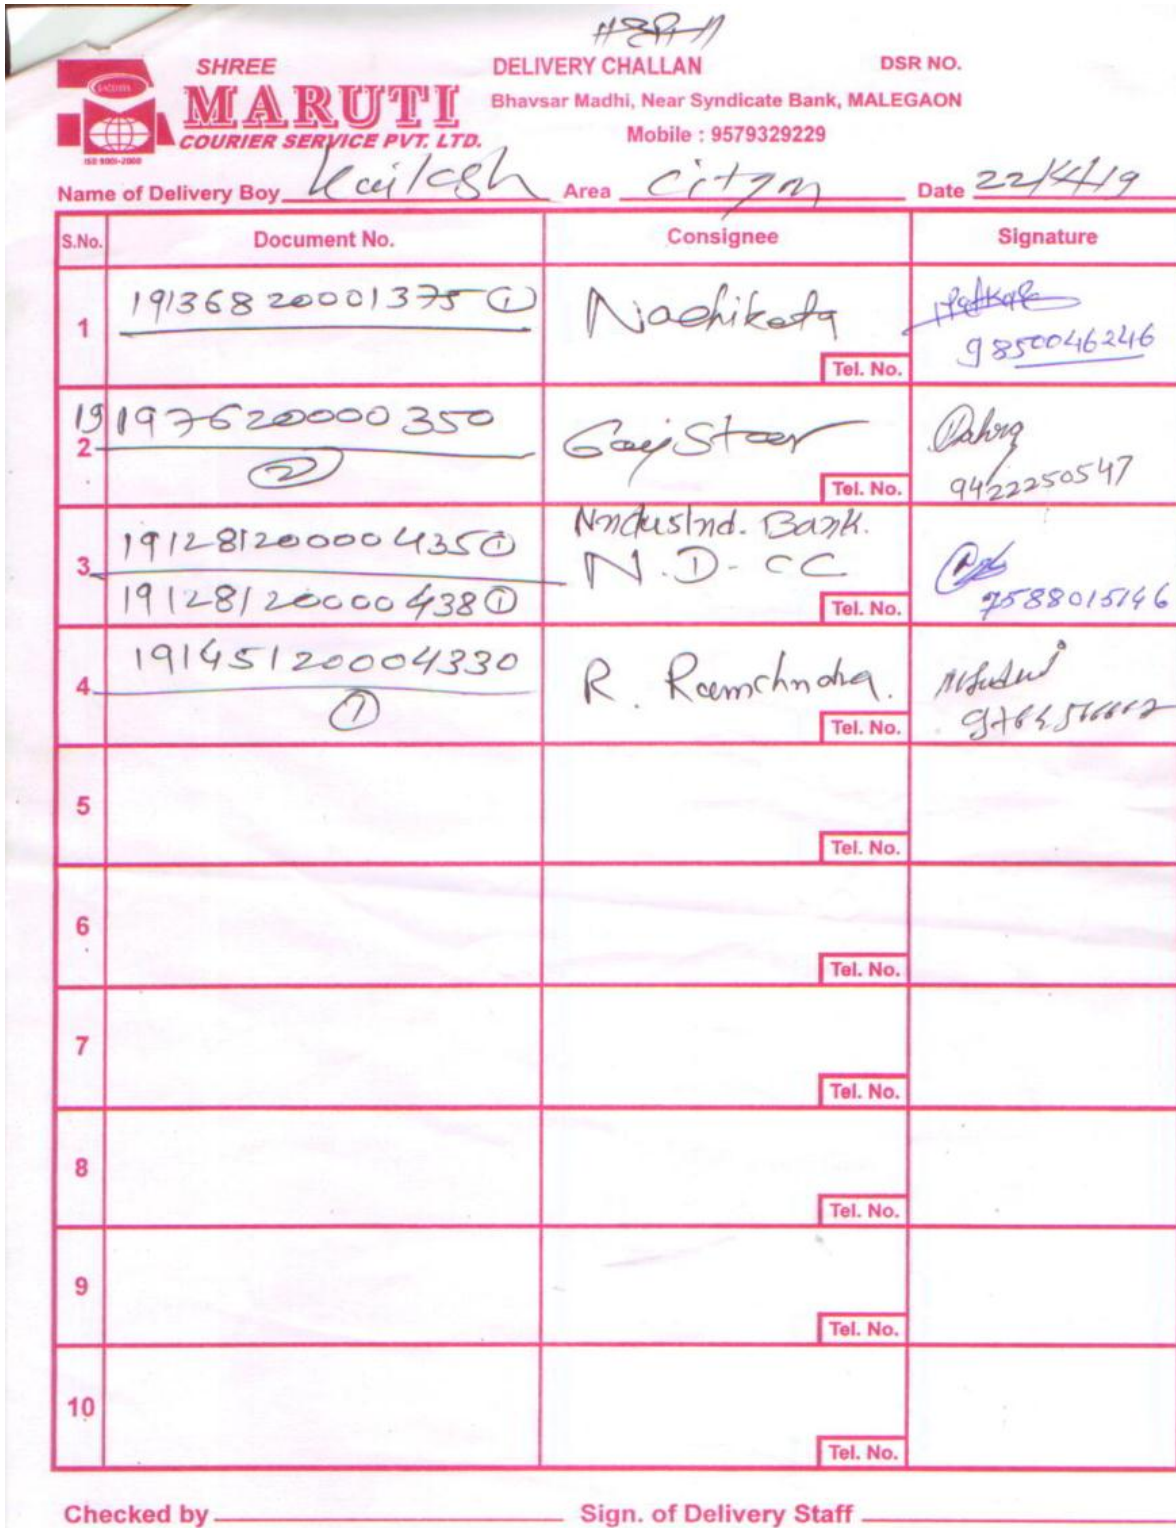 ॥श्री॥
SHREE
MARUTI
COURIER SERVICE PVT. LTD.
ISO 9001-2000
DELIVERY CHALLAN
DSR NO.
Bhavsar Madhi, Near Syndicate Bank, MALEGAON
Mobile : 9579329229
Name of Delivery Boy Kailash Area Date 22/4/19
S.No. Document No. Consignee Signature
1 19136820001375 ① Nachiketa
Tel. No. 9850046246
2 19197620000350
② Tel. No. 9422250547
3 19128120000435 ① Indusind. Bank.
N.D-CC
19128120000438 ① Tel. No. 7588015146
4 19145120004330 R. Ramchndra.
① Tel. No.
5
Tel. No.
6
Tel. No.
7
Tel. No.
8
Tel. No.
9
Tel. No.
10
Tel. No.
Checked by Sign. of Delivery Staff